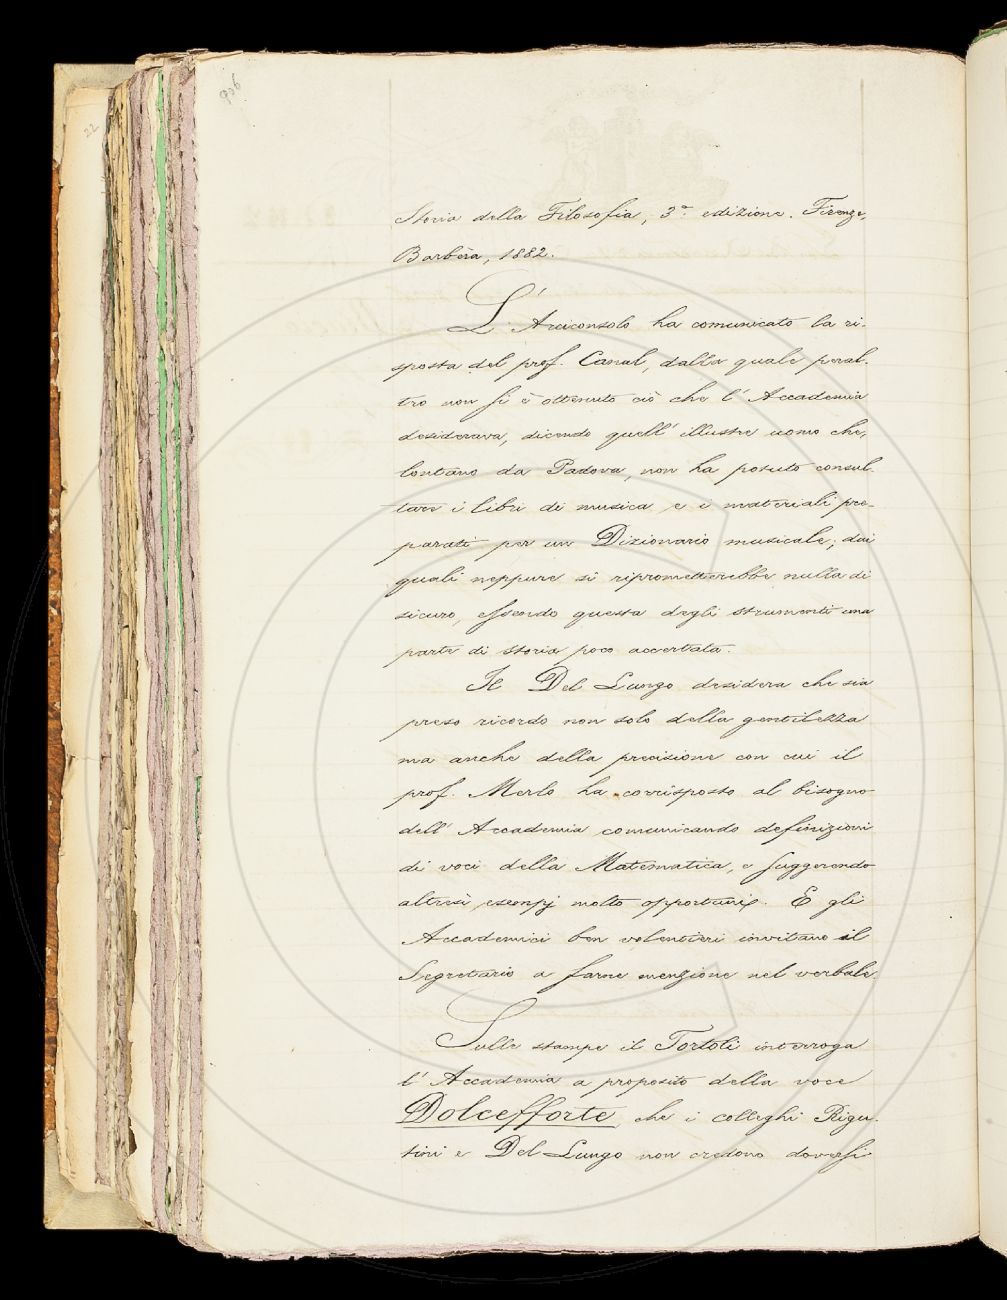 906
22
Storia della Filosofia, 3.ª edizione. Firenze,
Barbèra, 1882.
L'Arciconsolo ha comunicato la ri-
sposta del prof. Canal, dalla quale peral-
tro non si è ottenuto ciò che l'Accademia
desiderava, dicendo quell'illustre uomo che,
lontano da Padova, non ha potuto consul-
tare i libri di musica e i materiali pre-
parati per un Dizionario musicale; dai
quali neppure si ripromettterebbe nulla di
sicuro, essendo questa degli strumenti una
parte di storia poco accertata.
Il Del Lungo desidera che sia
preso ricordo non solo della gentilezza
ma anche della precisione con cui il
prof. Merlo ha corrisposto al bisogno
dell'Accademia comunicando definizioni
di voci della Matematica, e suggerendo
altresì esempj molto opportuni. E gli
Accademici ben volentieri invitano il
Segretario a farne menzione nel verbale.
Sulle stampe il Tortoli interroga
l'Accademia a proposito della voce
Dolcefforte, che i colleghi Rigu-
tini e Del Lungo non credono doversi